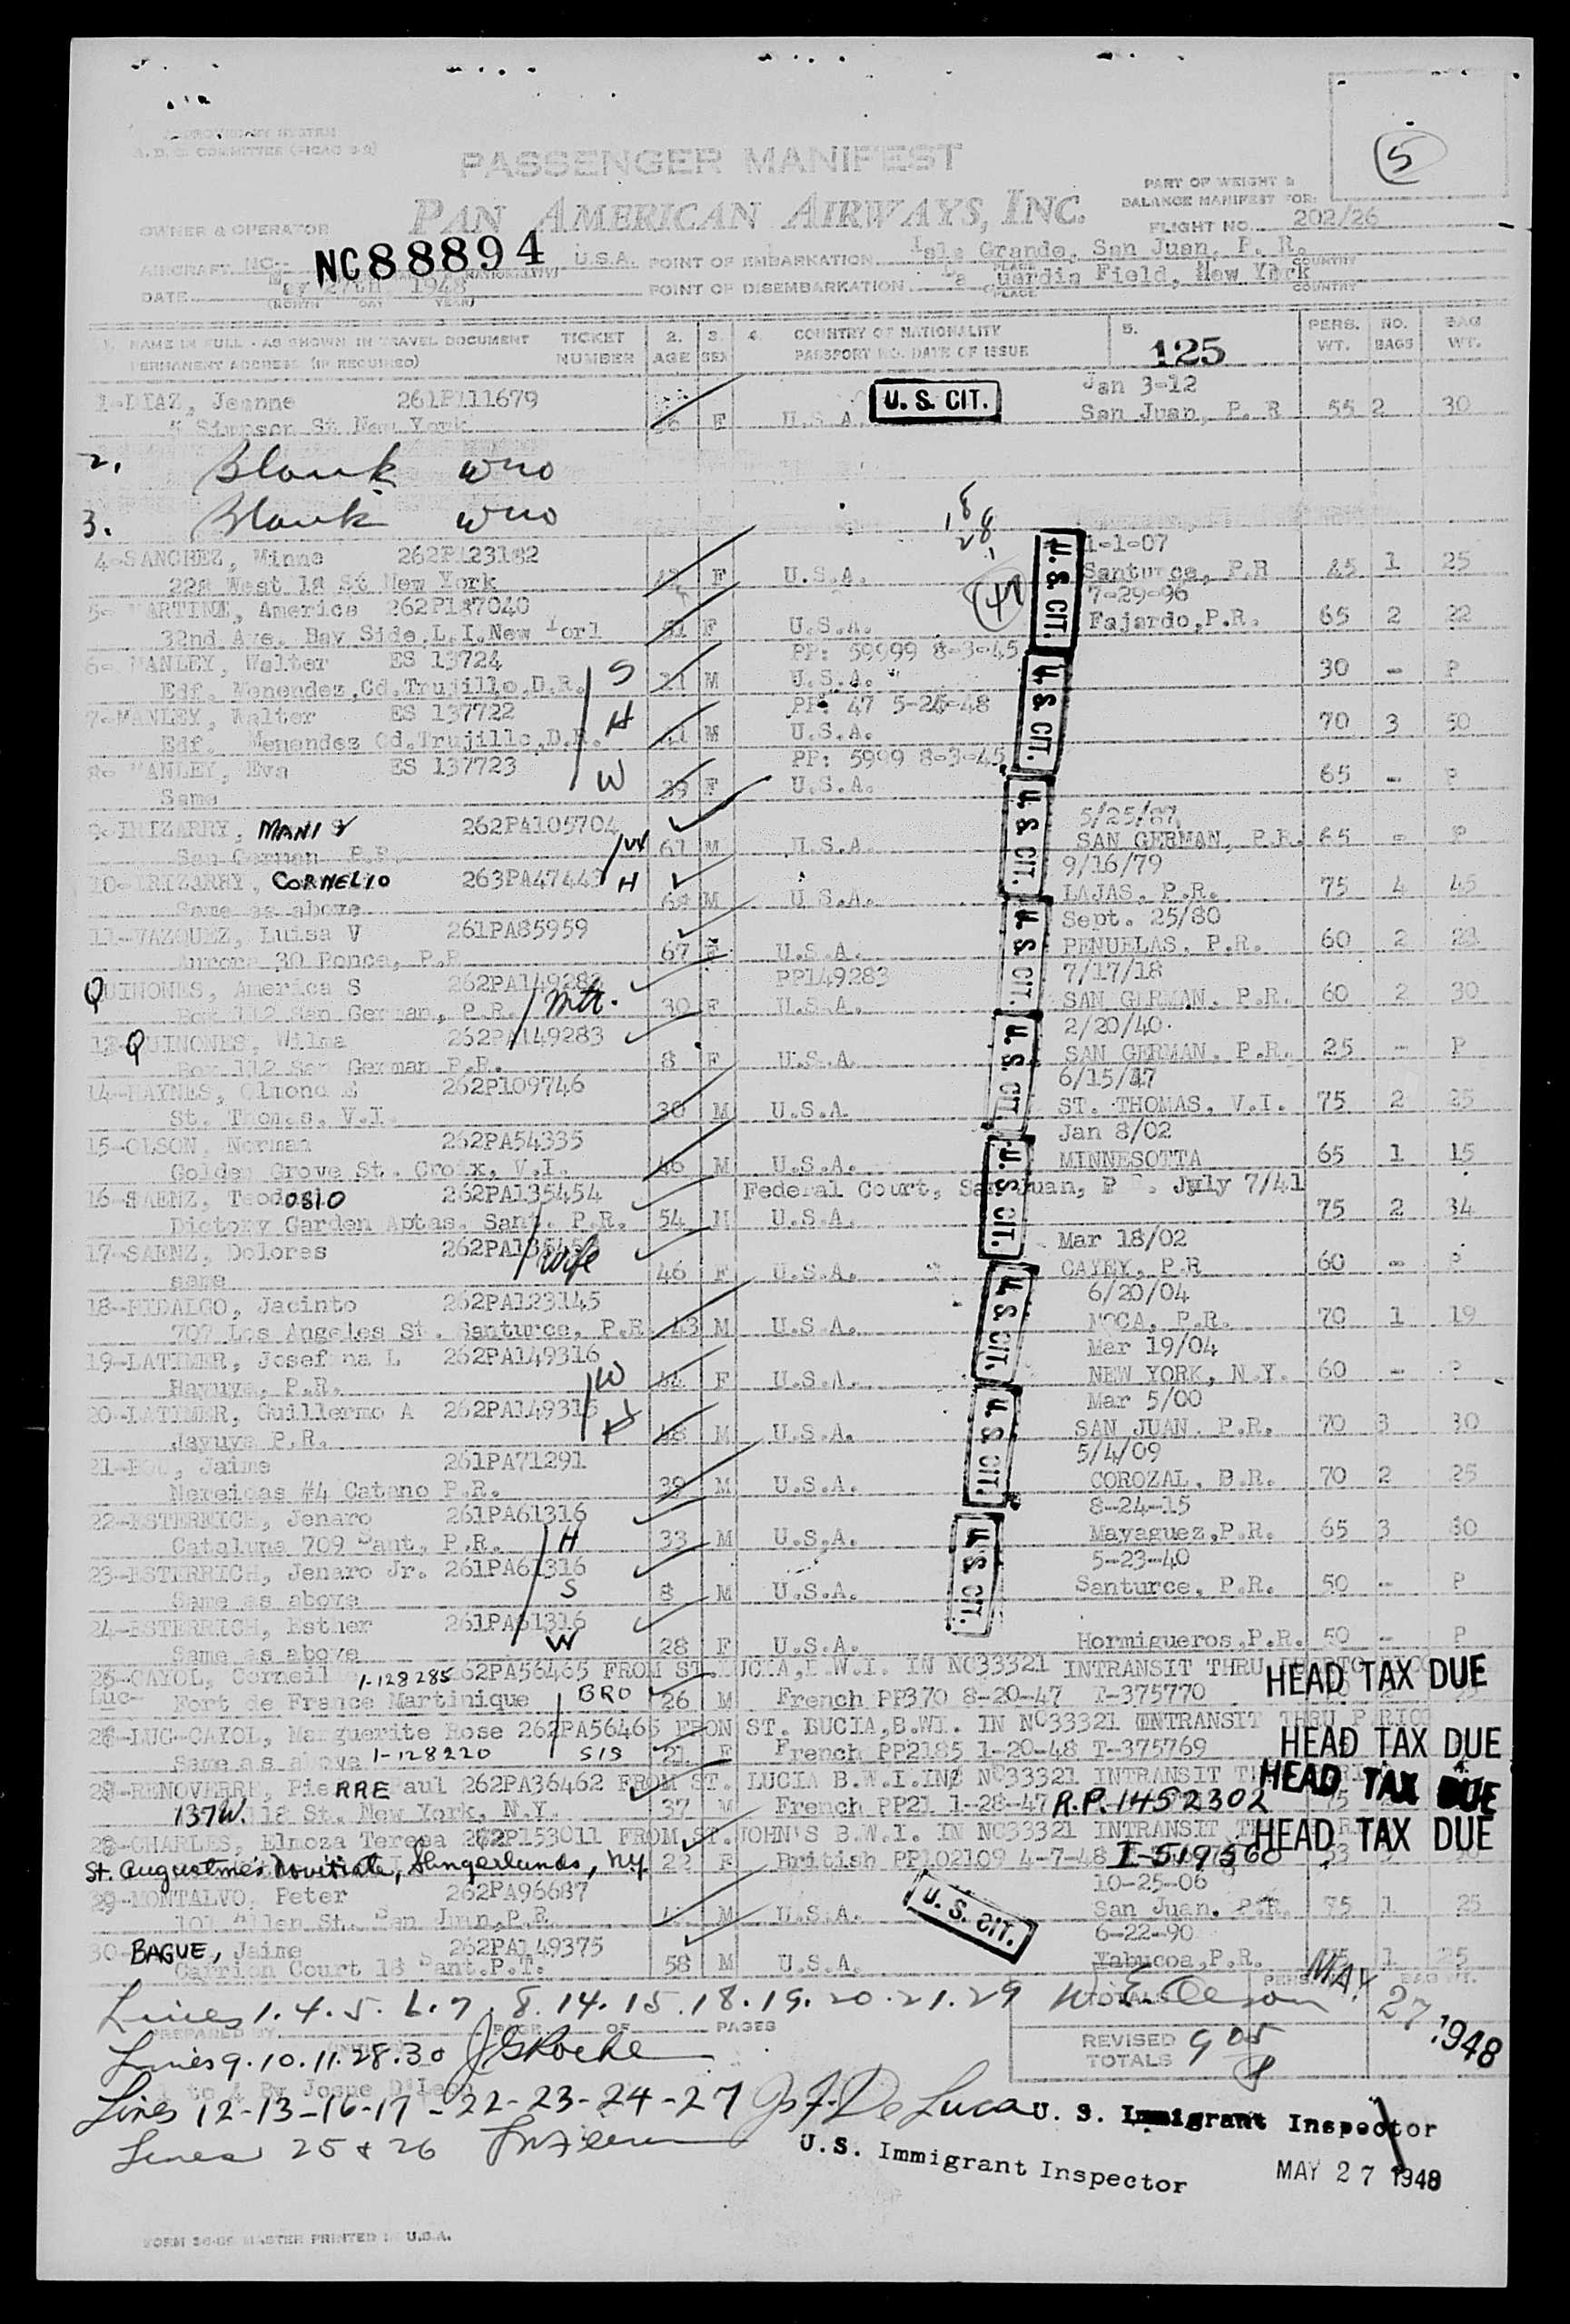 PASSENGER MANIFEST
PAN AMERICAN AIRWAYS, INC.
5
PART OF WEIGHT &
BALANCE MANIFEST FOR:
OWNER & OPERATOR
FLIGHT NO. 202/26
AIRCRAFT NO. NC88894 U.S.A. POINT OF EMBARKATION Isla Grande, San Juan, P. R.
DATE May 27th 1948 POINT OF DISEMBARKATION uardia Field, New York
(MONTH DAY YEAR) PLACE COUNTRY
1. NAME IN FULL - AS SHOWN IN TRAVEL DOCUMENT TICKET 2. 3. 4. COUNTRY OF NATIONALITY 5. PERS. NO. BAG
PERMANENT ADDRESS (IF REQUIRED) NUMBER AGE SEX PASSPORT NO. DATE OF ISSUE 125 WT. BAGS WT.
1-DIAZ, Jeanne 261PA11679 U.S. CIT. Jan 3-12
Simpson St New York F U.S.A. San Juan, P. R 55 2 30
2. Blank wno
3. Blank wno
4-SANCHEZ, Minna 262P123182 1-1-07
228 West 18 St New York F U.S.A. Santurce, P.R 45 1 25
5- MARTINE, America 262P187040 7-29-96
32nd Ave. Bay Side, L.I. New Yorl 51 F U.S.A. Fajardo, P.R. 65 2 22
6- MANLEY, Walter ES 13724 S PP: 59999 8-3-45
Edf. Menendez, Cd. Trujillo, D.R. M U.S.A. 30 - P
7-MANLEY, Walter ES 137722 H PP: 47 5-24-48
Edf. Menendez Cd. Trujillo, D.R. 41 M U.S.A. 70 3 50
8- MANLEY, Eva ES 137723 W PP: 5999 8-3-45
Same 39 F U.S.A. 65 - P
9-IRIZARRY, MANI 262PA105704 W 5/25/87
San German P.R. 61 M U.S.A. SAN GERMAN, P.R. 65 - P
10-IRIZARRY, CORNELIO 263PA47443 H 9/16/79
Same as above 68 M U.S.A. LAJAS, P.R. 75 4 45
11-VAZQUEZ, Luisa V 261PA85959 Sept. 25/80
Aurora 30 Ponce, P.R 67 F U.S.A. PENUELAS, P.R. 60 2 28
QUINONES, America S 262PA149282 Mtr. PP149283 7/17/18
Box 112 San German, P.R. 30 F U.S.A. SAN GERMAN, P.R. 60 2 30
13-QUINONES, Wilma 262PA149283 2/20/40
Box 112 San German P.R. 8 F U.S.A. SAN GERMAN, P.R. 25 - P
14-HAYNES, Olmond E 262P109746 6/15/17
St. Thomas, V.I. 30 M U.S.A ST. THOMAS, V.I. 75 2 25
15-OLSON, Norman 262PA54335 Jan 8/02
Golden Grove St. Croix, V.I. 46 M U.S.A. MINNESOTTA 65 1 15
16-SAENZ, TeodOSIO 262PA135454 Federal Court, San Juan, P. July 7/41
Dictory Garden Aptas. Sant. P.R. 54 M U.S.A. 75 2 34
17-SAENZ, Dolores 262PA13545 Wife Mar 18/02
same 46 F U.S.A. CAYEY, P.R 60 - P
18-HIDALGO, Jacinto 262PA123145 6/20/04
707 Los Angeles St. Santurce, P.R. 43 M U.S.A. MOCA, P.R. 70 1 19
19-LATIMER, Josefina L 262PA149316 W Mar 19/04
Hayuya, P.R. 44 F U.S.A. NEW YORK, N.Y. 60 - P
20-LATIMER, Guillermo A 262PA149315 H Mar 5/00
Jayuya P.R. 48 M U.S.A. SAN JUAN. P.R. 70 3 30
21-BOU, Jaime 261PA71291 5/4/09
Nereidas #4 Catano P.R. 39 M U.S.A. COROZAL, P.R. 70 2 25
22-ESTERRICH, Jenaro 261PA61316 H 8-24-15
Cataluna 709 Sant, P.R. 33 M U.S.A. Mayaguez, P.R. 65 3 60
23-ESTERRICH, Jenaro Jr. 261PA61316 S 5-23-40
Same as above 8 M U.S.A. Santurce, P.R. 50 - P
24-ESTERRICH, Esther 261PA61316 W
Same as above 28 F U.S.A. Hormigueros, P.R. 50 - P
25-CAYOL, Corneil 1-128285 262PA56465 FROM ST. LUCIA, B.W.I. IN NC33321 INTRANSIT THRU HEAD TAX DUE
Luc- Fort de France Martinique BRO 26 M French PP370 8-20-47 T-375770
26-LUC-CAYOL, Marguerite Rose 262PA56465 FRON ST. LUCIA, B.WI. IN NC33321 INTRANSIT THRU P RICO
Same as above 1-128220 SIS 21 F French PP2185 1-20-48 T-375769 HEAD TAX DUE
-RENOVERRE, PieRRE Paul 262PA36462 FROM ST. LUCIA B.W.I. IN NC33321 INTRANSIT HEAD TAX DUE
137 W. 118 St. New York, N.Y. 37 M French PP21 1-28-47 R.P. 1452302
28-CHARLES, Elnoza Teresa 262P153011 FROM ST. JOHN'S B.W.I. IN NC33321 INTRANSIT HEAD TAX DUE
St. Augustine's Novitiate, Slingerlands, NY. 22 F British PP102109 4-7-48 I-519560
29-MONTALVO, Peter 262PA96687 10-25-06
101 Allen St. San Juan, P.R. M U.S.A. U.S. CIT. San Juan. P.R. 75 1 25
30- BAGUE, Jaime 262PA149375 6-22-90
Carrion Court 18 Sant. P.T. 58 M U.S.A. Yabucoa, P.R. 1 25
U. S. CIT.
U. S. CIT.
U. S. CIT.
U. S. CIT.
U. S. CIT.
U. S. CIT.
U. S. CIT.
U. S. CIT.
U. S. CIT.
Lines 1. 4. 5. 6. 7. 8. 14. 15. 18. 19. 20. 21. 29 TOTALS MAY 27 1948
PREPARED BY PAGE OF PAGES
REVISED TOTALS 905
Lines 9. 10. 11. 28. 30 J G Roche
Lines 12-13-16-17-22-23-24-27 De Luca U. S. Immigrant Inspector
Lines 25 & 26 U.S. Immigrant Inspector MAY 27 1948
FORM MASTER PRINTED IN U.S.A.